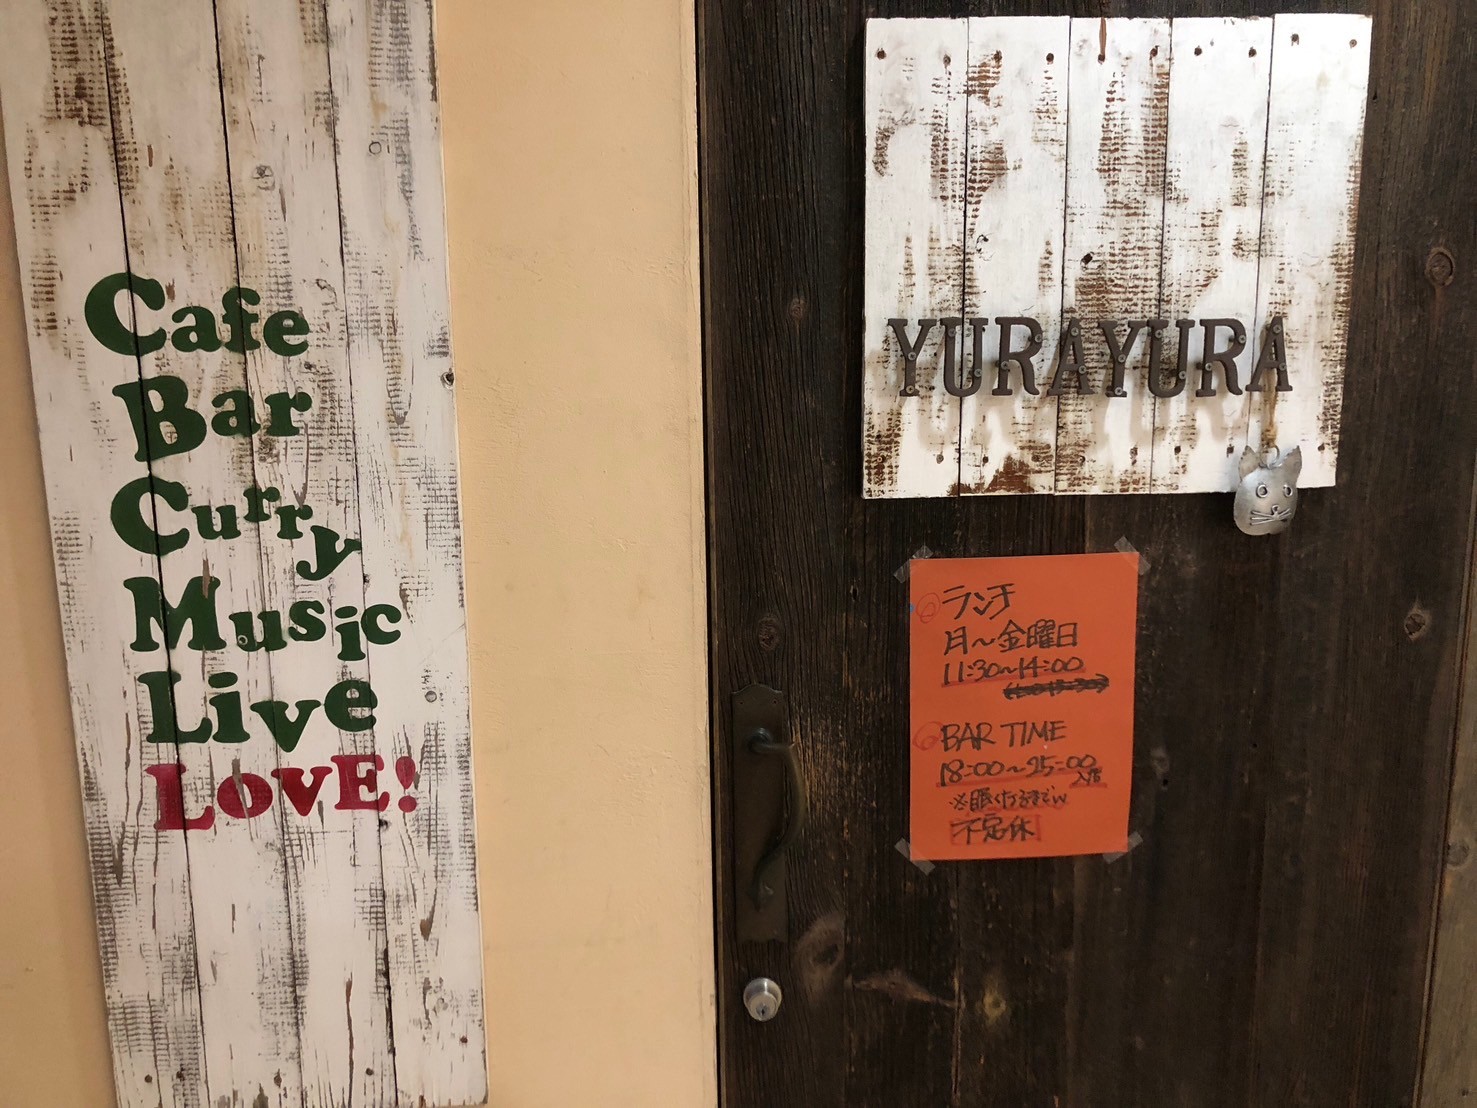 Cafe
Bar
Curry
Music
Live
LOVE!
YURAYURA
ランチ
月〜金曜日
11:30〜14:00
BAR TIME
18:00〜25:00
入店
※眠くなるまでw
不定休